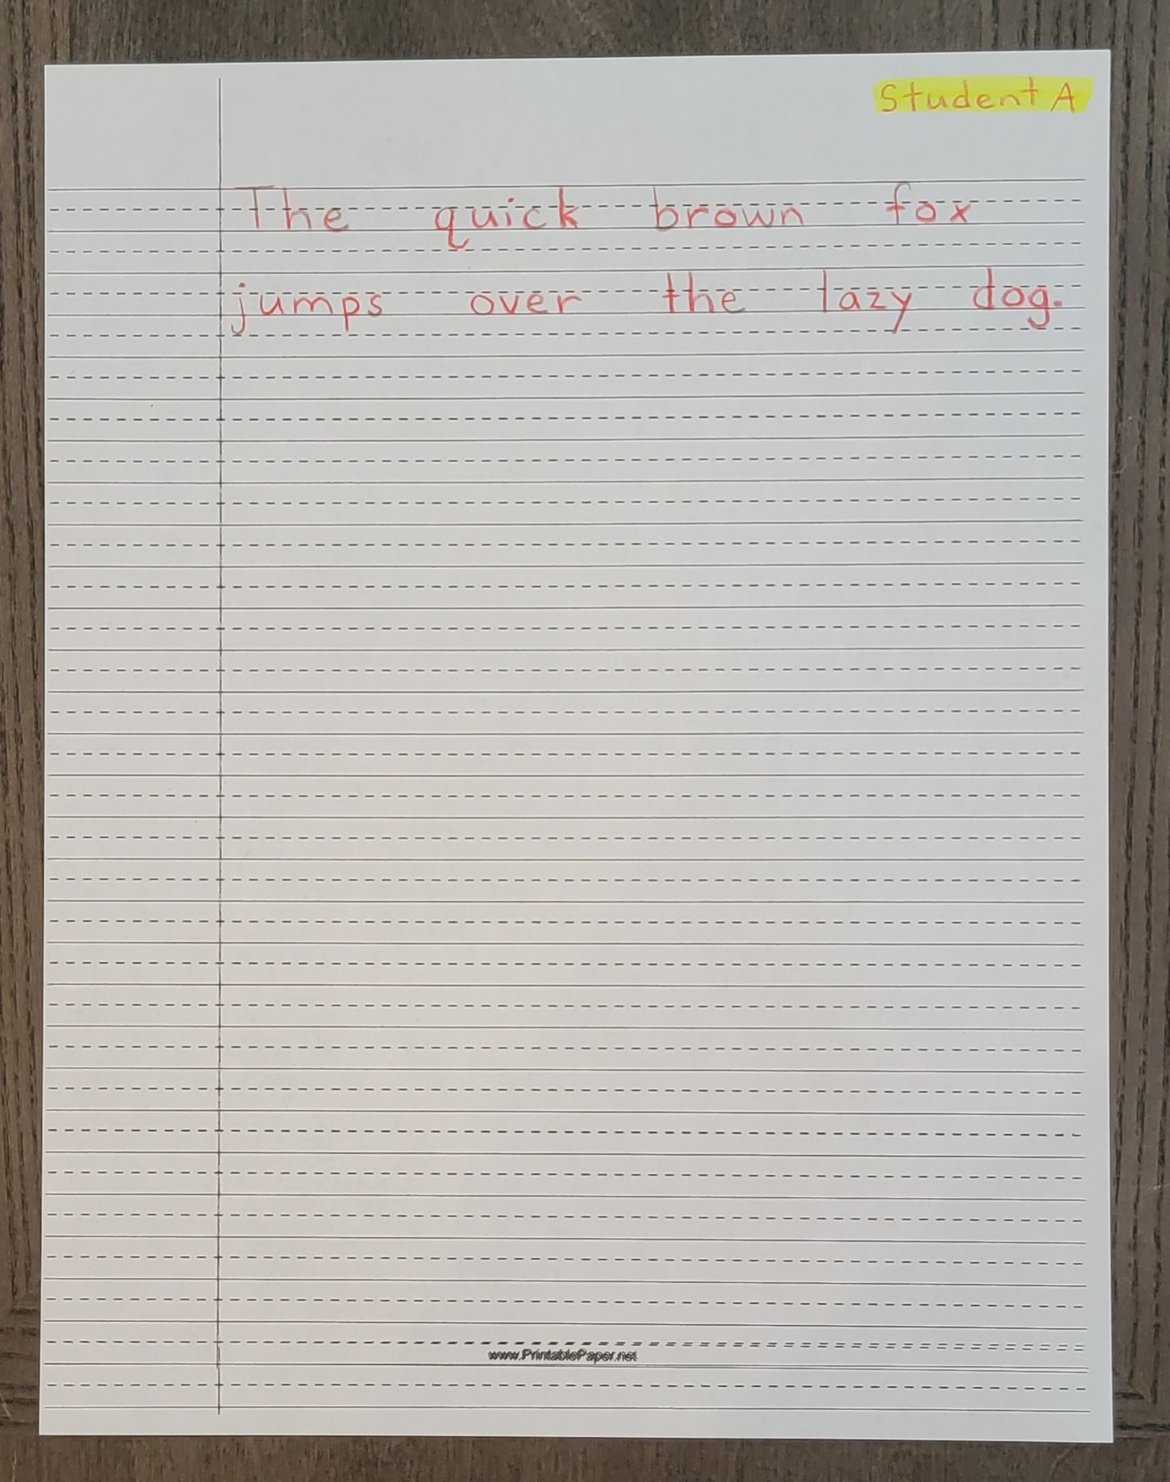 Student A
The quick brown fox
jumps over the lazy dog.
www.PrintablePaper.net